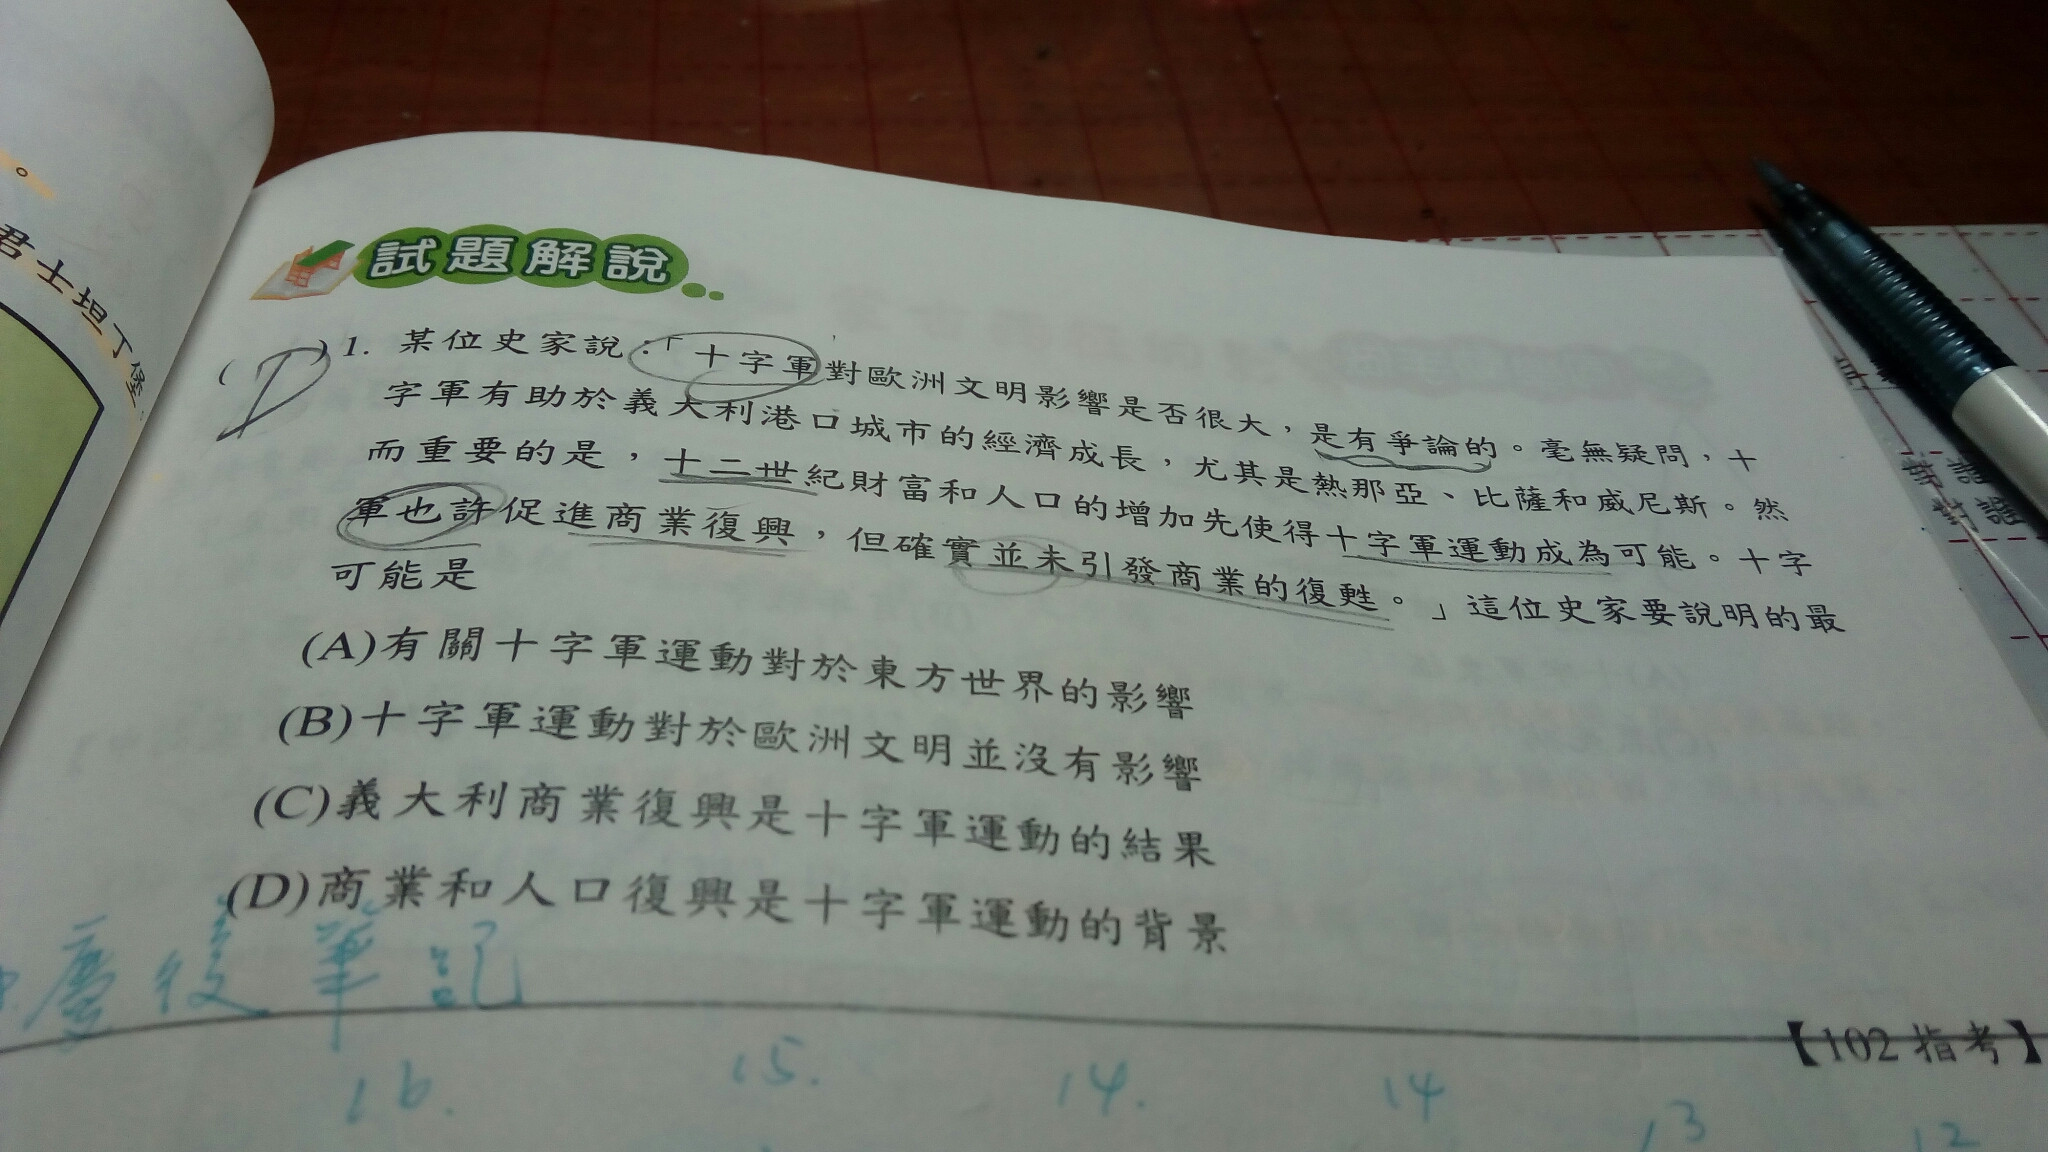 。
君士坦丁堡。
試題解說
(D)1. 某位史家說:「十字軍對歐洲文明影響是否很大,是有爭論的。毫無疑問,十
字軍有助於義大利港口城市的經濟成長,尤其是熱那亞、比薩和威尼斯。然
而重要的是,十二世紀財富和人口的增加先使得十字軍運動成為可能。十字
軍也許促進商業復興,但確實並未引發商業的復甦。」這位史家要說明的最
可能是
(A)有關十字軍運動對於東方世界的影響
(B)十字軍運動對於歐洲文明並沒有影響
(C)義大利商業復興是十字軍運動的結果
(D)商業和人口復興是十字軍運動的背景
【102 指考】
後筆記
16. 15. 14. 14 13 12